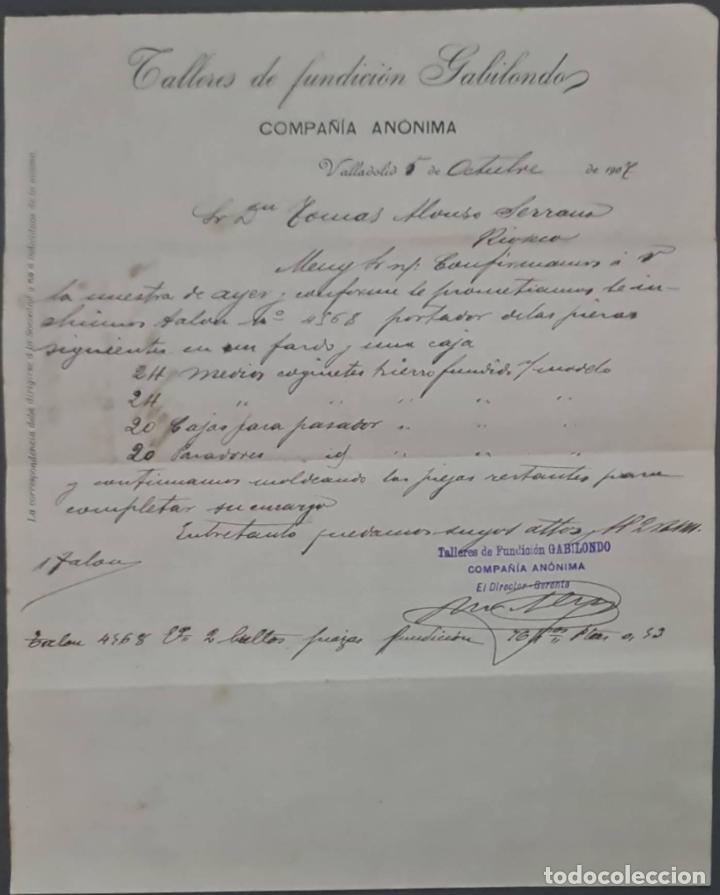 Talleres de fundición Gabilondo
COMPAÑÍA ANÓNIMA
Valladolid 5 de Octubre de 1907
Sr Dn Tomas Alonso Serrano
Rioseco
Muy Sr n/. Confirmamos á V
la nuestra de ayer y conforme le prometiamos le in-
cluimos talon nº 4568 portador de las piezas
siguientes en un fardo y una caja
24 Medios cojinetes hierro fundido s/ modelo
24 " " " " "
20 Cajas para pasador " " "
20 Pasadores id " " "
y continuamos moldeando las piezas restantes para
completar su encargo
Entretanto quedamos suyos attos
1 talon
Talleres de Fundición GABILONDO
COMPAÑIA ANÓNIMA
El Director-Gerente
Talon 4568 2 bultos piezas fundición 76
La correspondencia debe dirigirse á la Sociedad y no á individuos de la misma.
todocoleccion